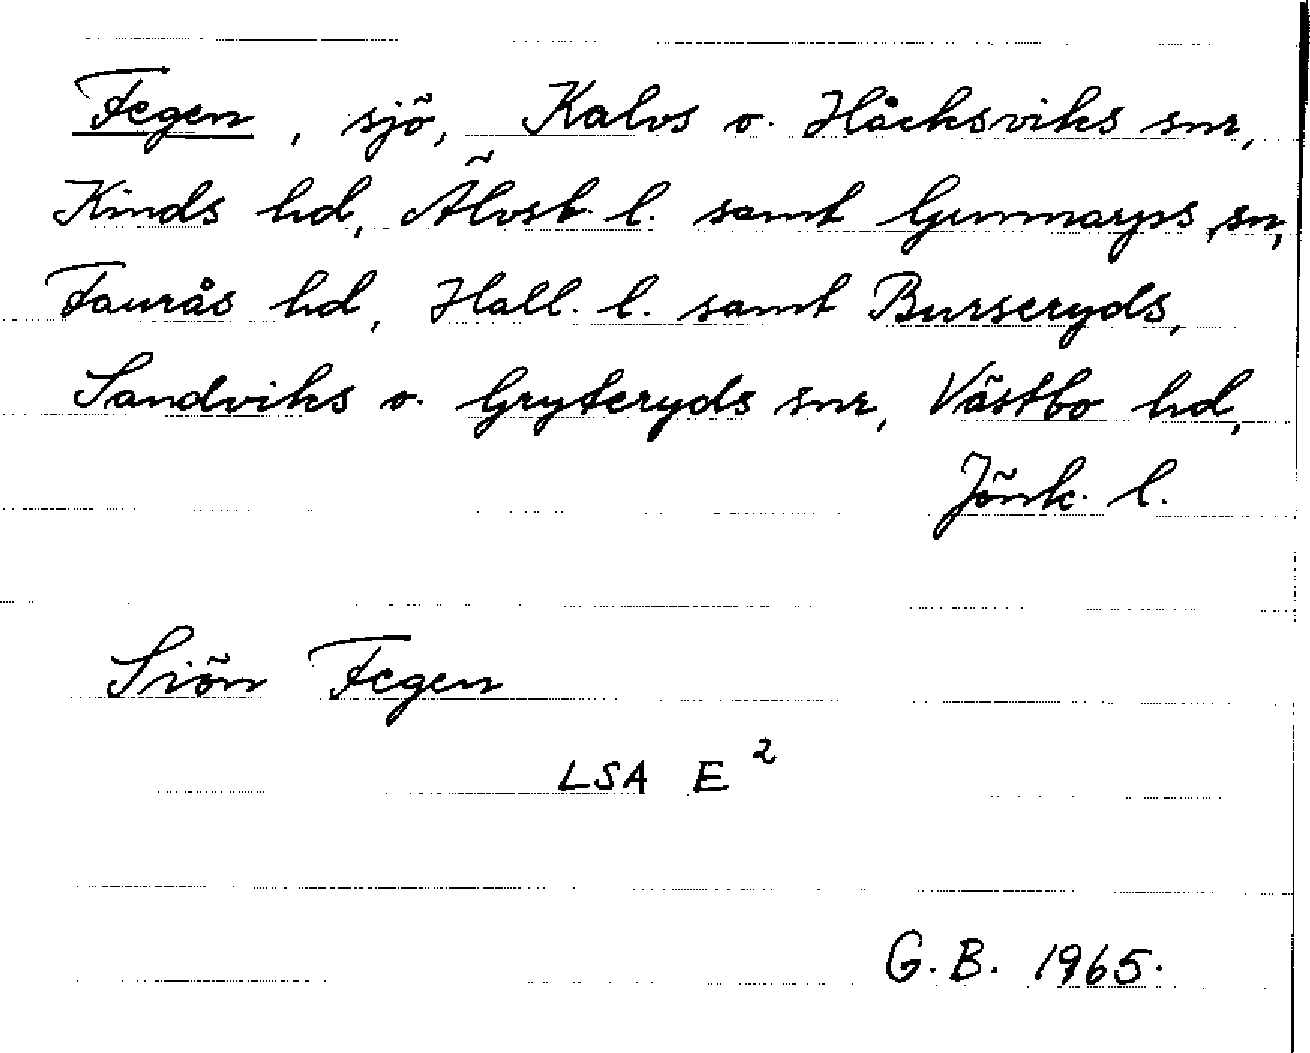 Fegen, sjö, Kalvs o. Håcksviks snr,
Kinds hd, Älvsb. l. samt Gunnarps sn,
Faurås hd, Hall. l. samt Burseryds,
Sandviks o. Gryteryds snr, Västbo hd,
Jönk. l.
Siön Fegen
LSA E²
G.B. 1965.